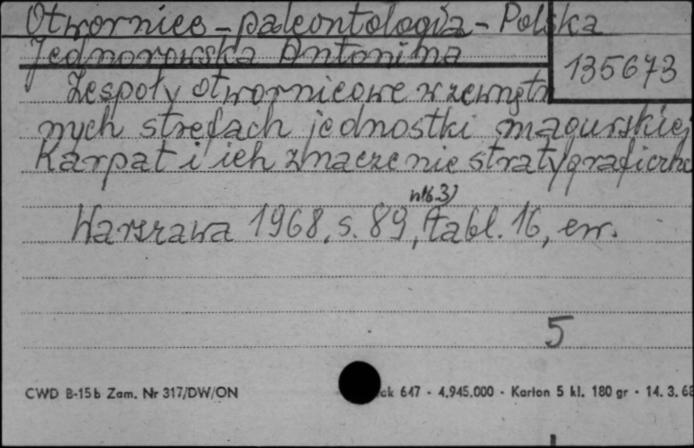 Otwornice - paleontologia - Polska
Jednorowska Antonina
135673
Zespoły otwornicowe w zewnętrz
nych strefach jednostki magurskiej
Karpat i ich znaczenie stratygraficzne
Warszawa 1968, s. 89, tabl. 16, err.
5
CWD B-15b Zam. Nr 317/DW/ON
ak 647 - 4.945.000 - Karton 5 kl. 180 gr - 14. 3. 68